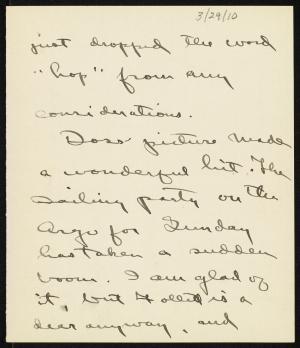 3/29/10
just dropped the word
"hop" from any
considerations.
Doss' picture made
a wonderful hit. The
sailing party on the
Argo for Sunday
has taken a sudden
boom. I am glad of
it, but Hollis is a
dear anyway, and